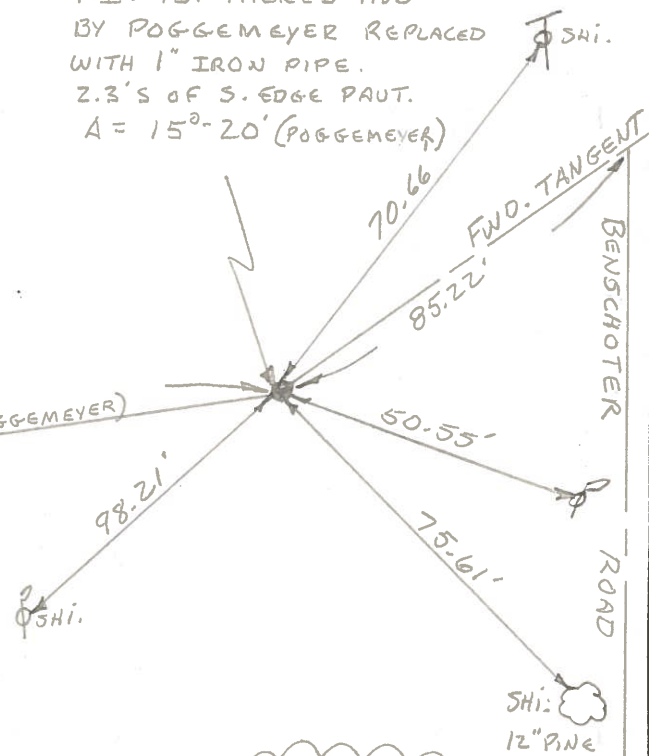 BY POGGEMEYER REPLACED
WITH 1" IRON PIPE.
2.3'S OF S. EDGE PAVT.
Δ = 15°-20' (POGGEMEYER)
SHi.
70.66
FWD. TANGENT
85.22'
BENSCHOTER
ROAD
GGEMEYER)
50.55'
98.21'
75.61'
SHi.
SHi.
12" PINE